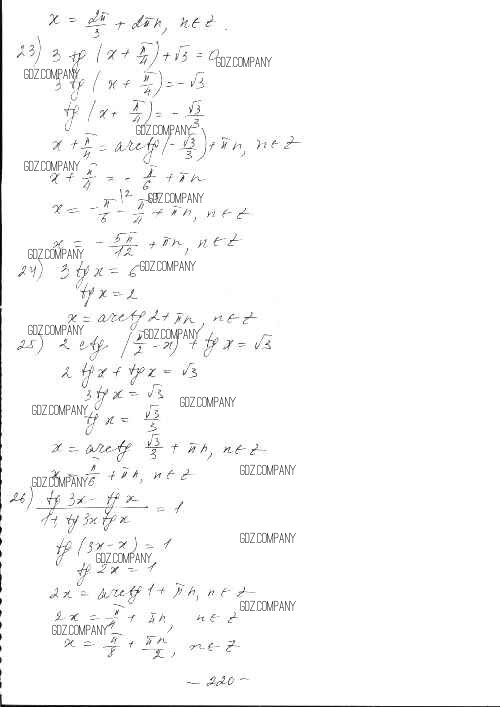 x = 2π/3 + 2πn, n∈Z.
23) 3 tg (x + π/4) + √3 = 0
GDZ.COMPANY
GDZ.COMPANY
3 tg (x + π/4) = -√3
tg (x + π/4) = - √3/3
GDZ.COMPANY
x + π/4 = arctg(- √3/3) + πn, n∈Z
GDZ.COMPANY
x + π/4 = - π/6 + πn
GDZ.COMPANY
x = - π/6 - π/4 + πn, n∈Z
x = - 5π/12 + πn, n∈Z
GDZ.COMPANY
24) 3 tg x = 6
GDZ.COMPANY
tg x = 2
x = arctg 2 + πn, n∈Z
GDZ.COMPANY
GDZ.COMPANY
25) 2 ctg (π/2 - x) + tg x = √3
2 tg x + tg x = √3
3 tg x = √3
GDZ.COMPANY
GDZ.COMPANY
tg x = √3/3
x = arctg √3/3 + πn, n∈Z
x = π/6 + πn, n∈Z
GDZ.COMPANY
GDZ.COMPANY
26) (tg 3x - tg x)/(1 + tg 3x tg x) = 1
tg (3x - x) = 1
GDZ.COMPANY
GDZ.COMPANY
tg 2x = 1
2x = arctg 1 + πn, n∈Z
2x = π/4 + πn, n∈Z
GDZ.COMPANY
GDZ.COMPANY
x = π/8 + πn/2, n∈Z
- 220 -